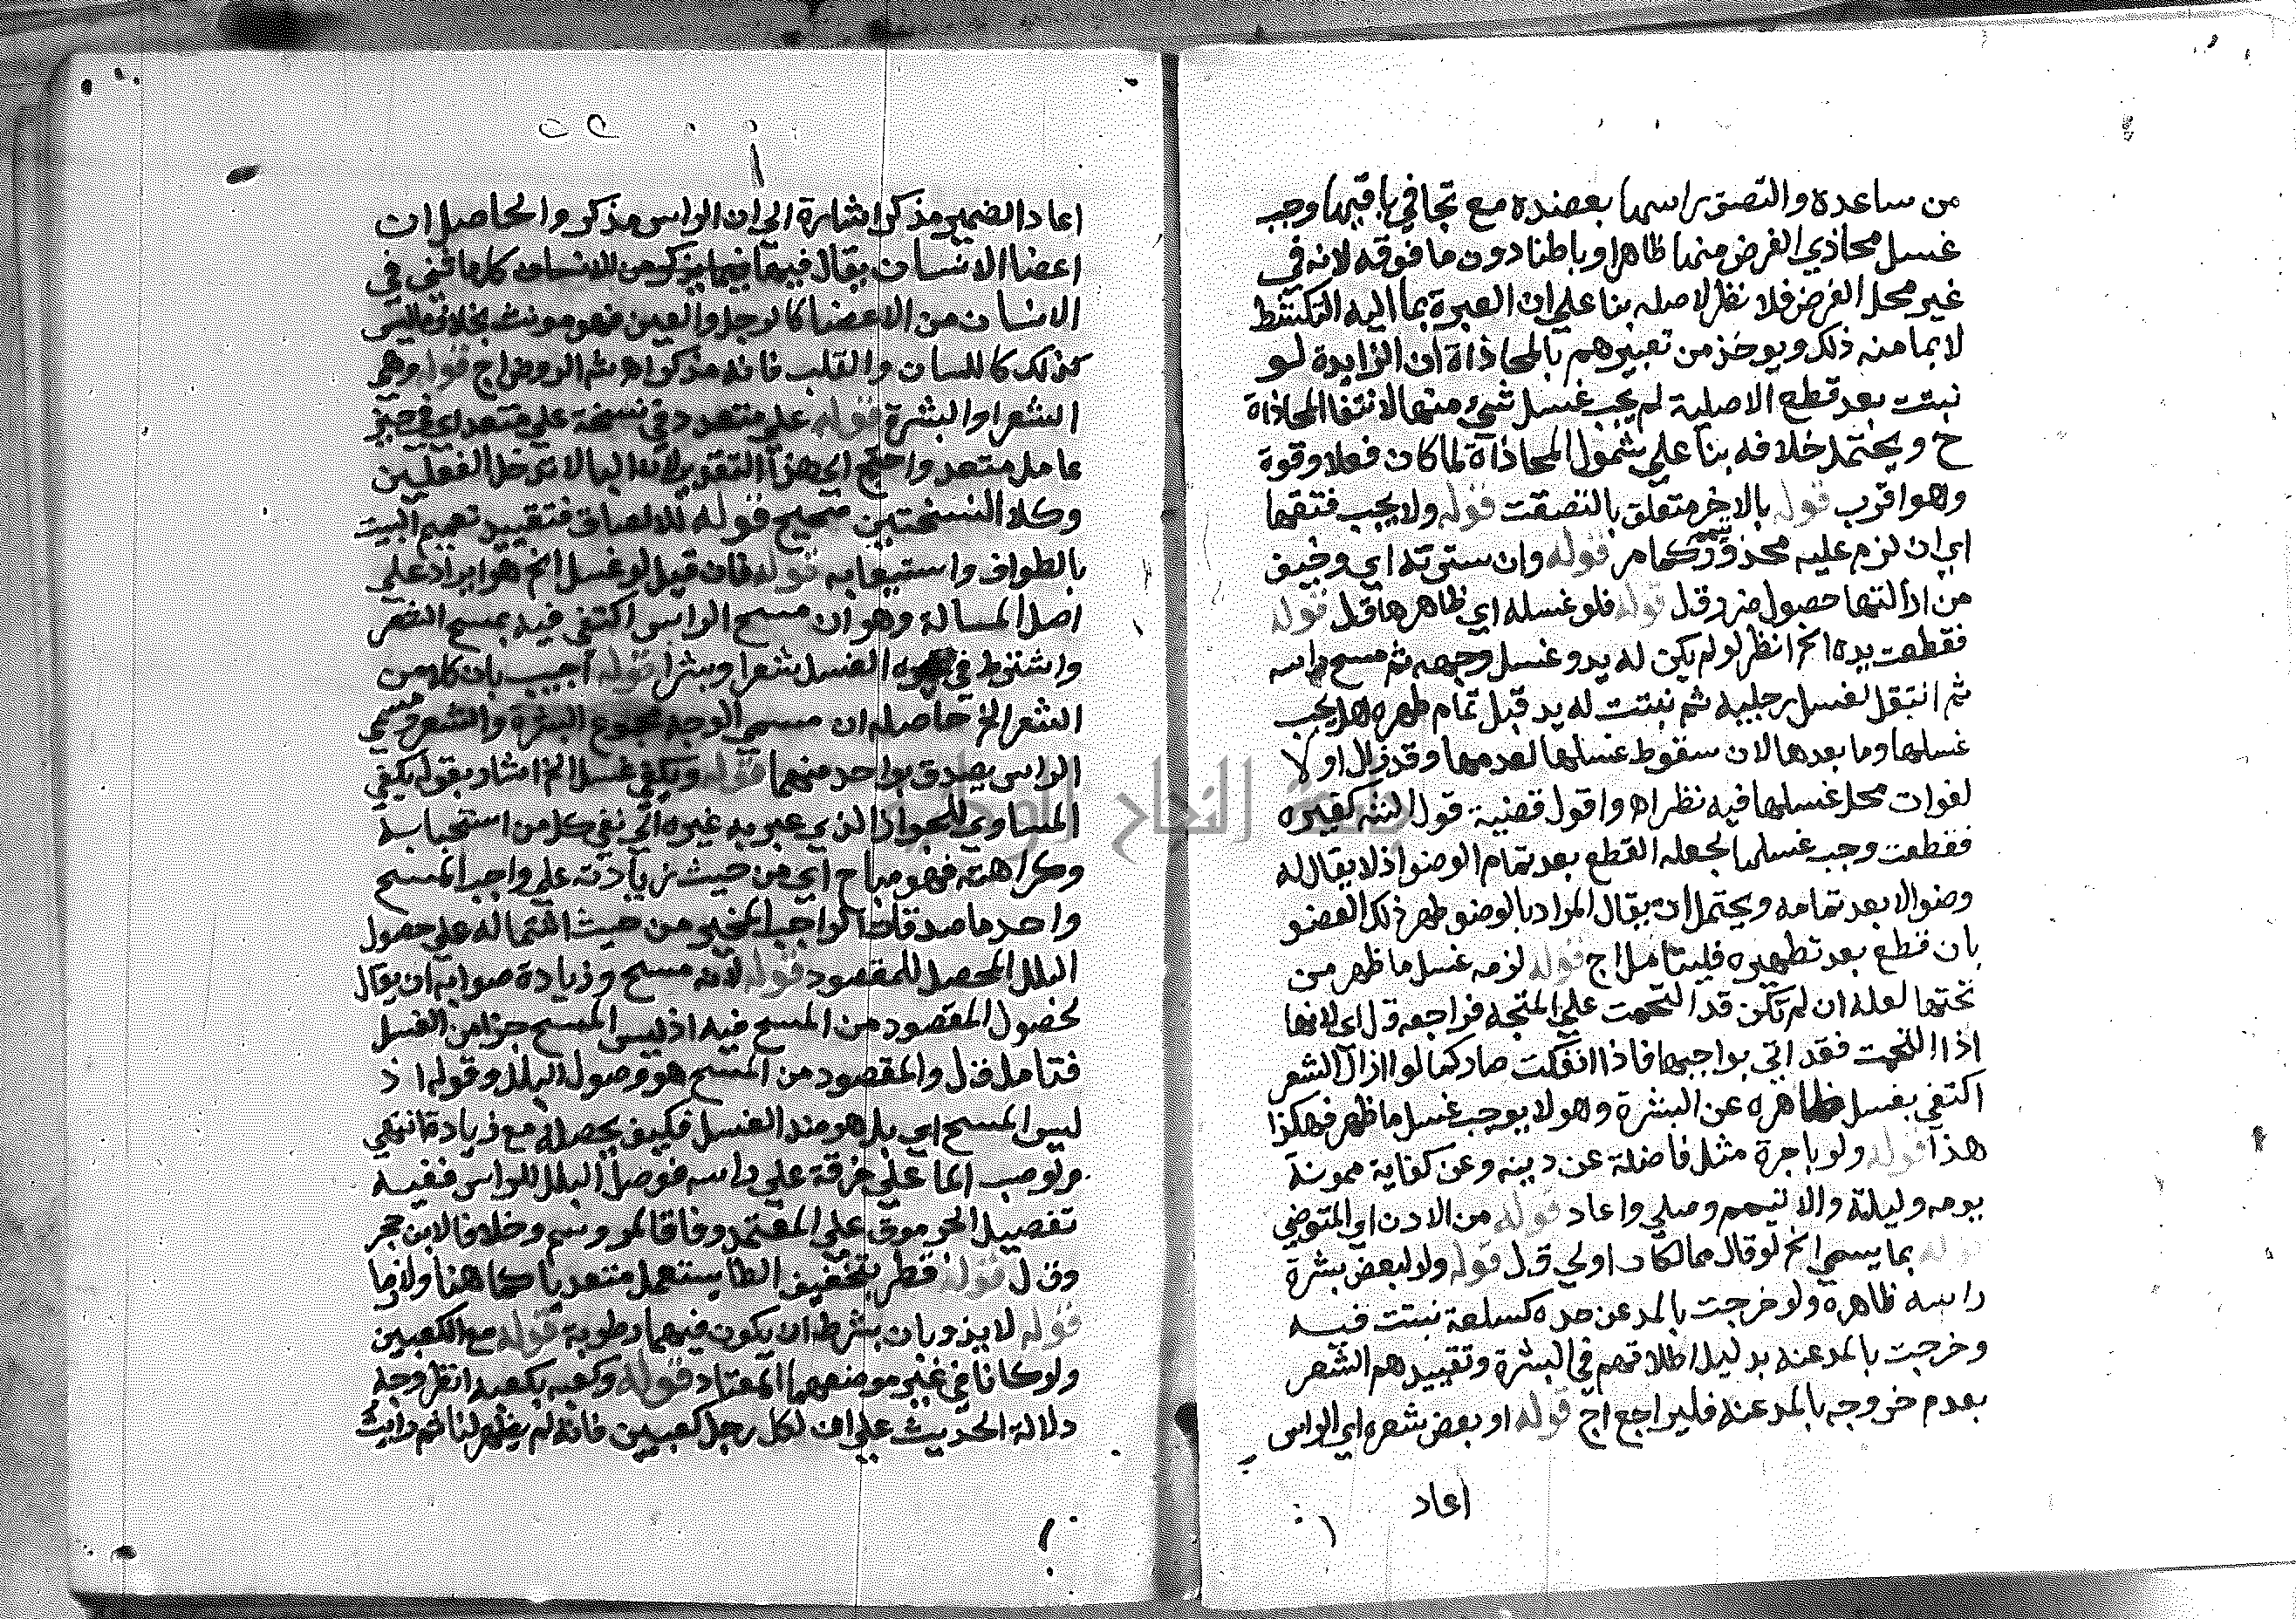 من ساعده والتصق راسها بعضده مع تجافي باقيها وجب
غسل محاذي الفرض منها ظاهرا وباطنا دون ما فوقه لانه في
غير محل الفرض فلا نظر لاصله بنا علي ان العبرة بما اليه التكشط
لا بما منه ذلك ويوخذ من تعبيرهم بالمحاذاة ان الزايدة لو
نبتت بعد قطع الاصلية لم يجب غسل شيء منها لانتفا المحاذاة
ح ويحتمل خلافه بنا علي شمول المحاذاة لما كان فعلا وقوة
وهو اقرب قوله بالاخر متعلق بالتصقت قوله ولا يجب فتقها
اي ان لزم عليه محذور كما مر قوله وان سترته اي وخيف
من ازالتها حصول ضرر ق ل قوله فلو غسله اي ظاهرها ق ل قوله
فقطعت يده الخ انظر لو لم يكن له يد وغسل وجهه ثم مسح راسه
ثم انتقل لغسل رجليه ثم نبتت له يد قبل تمام طهره هل يجب
غسلها وما بعدها لان سقوط غسلها لعدمها وقد زال او لا
لفوات محل غسلها فيه نظر اه واقول قضية قول الش كغيره
فقطعت وجب غسلها لجعله القطع بعد تمام الوضو اذ لا يقال له
وضو الا بعد تمامه ويحتمل ان يقال المراد بالوضو طهر ذلك العضو
بان قطع بعد تطهيره فليتامل اج قوله لزمه غسل ما ظهر من
تحتها لعله ان لم تكن قد التحمت علي المتجه فراجعه ق ل اي لانها
اذا التحمت فقد اتي بواجبها فاذا انفكت صار كما لو ازال الشعر
اكتفي بغسل ظاهره عن البشرة وهو لا يوجب غسل ما ظهر فهكذا
هذا قوله ولو باجرة مثل فاضلة عن دينه وعن كفاية ممونه
يومه وليلة والا تيمم وصلي واعاد قوله من الاذن اي المتوضي
قوله بما يسمي الخ لو قال مما لكان اولي ق ل قوله ولا لبعض بشرة
راسه ظاهره ولو خرجت بالمد عن حده كسلعة نبتت فيه
وخرجت بالمد عنه بدليل اطلاقهم في البشرة وتقييدهم الشعر
بعدم خروجه بالمد عنه فليراجع اج قوله او بعض شعره اي الراس
اعاد
٢٢
اعاد الضمير مذكرا اشارة الي ان الراس مذكر والحاصل ان
اعضا الانسان يقال فيها كل ما ثني في
الانسان من الاعضا كالرجل والعين فهو مونث بخلاف ما ليس
كذلك كاللسان والقلب فانه مذكر اه ش الروض اج قوله وهم
الشعر والبشرة قوله علي متعدد في نسخة علي متعد اي في حيز
عامل متعد واحتج الي هذا التقدير لان البا لا تدخل الفعلين
وكلا النسختين صحيح قوله للالصاق فتقييد تعميم البيت
بالطواف واستيعابه قوله فان قيل لو غسل الخ هو ايراد علي
اصل المسالة وهو ان مسح الراس اكتفي فيه بمسح الشعر
واشترط في الغسل شعرا وبشرا قوله اجيب بان كلا من
الشعر الخ حاصله ان مسمي الوجه مجموع البشرة والشعر ومسمي
الراس يصدق بواحد منهما قوله ويكفي غسل الخ اشار بقوله يكفي
المساوي للجواز الذي عبر به غيره الي نفي كل من استحبابه
وكراهته فهو مباح اي من حيث زيادته علي واجب المسح
واحد ما صدقات الواجب المخير من حيث اشتماله علي حصول
البلل المحصل للمقصود قوله لانه مسح وزيادة صوابه ان يقال
لحصول المقصود من المسح فيه اذ ليس المسح جزا من الغسل
فتامل ق ل والمقصود من المسح هو وصول البلل وقوله اذ
ليس المسح اي بل هو ضد الغسل فكيف يحصله مع زيادة انتهي
ولو صب الما علي خرقة علي راسه فوصل البلل للراس ففيه
تفصيل الجرموق علي المعتمد وفاقا لم ر وسم وخلافا لابن حجر
وق ل قوله قطر بتخفيف الطا يستعمل متعديا كما هنا ولازما
قوله لا يذوبان بشرط ان يكون فيهما رطوبة قوله مع الكعبين
ولو كانا في غير موضعهما المعتاد قوله وكعبه بكعبه انظر وجه
دلالة الحديث علي ان لكل رجل كعبين فانه لم يظهر لنا ثم رايت